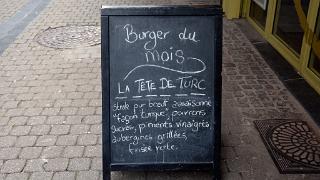 Burger du
mois
LA TÊTE DE TURC
steak pur bœuf assaisonné
"façon turque", poivrons
sucrés, piments vinaigrés,
aubergines grillées,
frisée verte.